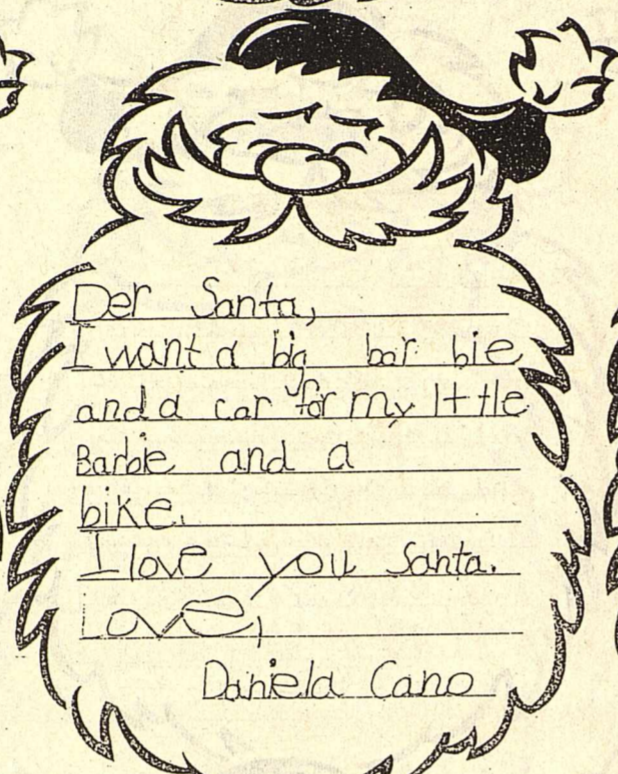 Der Santa,
I want a big bar bie
and a car for my lttle
Barbie and a
bike.
I love you Santa.
Love,
Daniela Cano